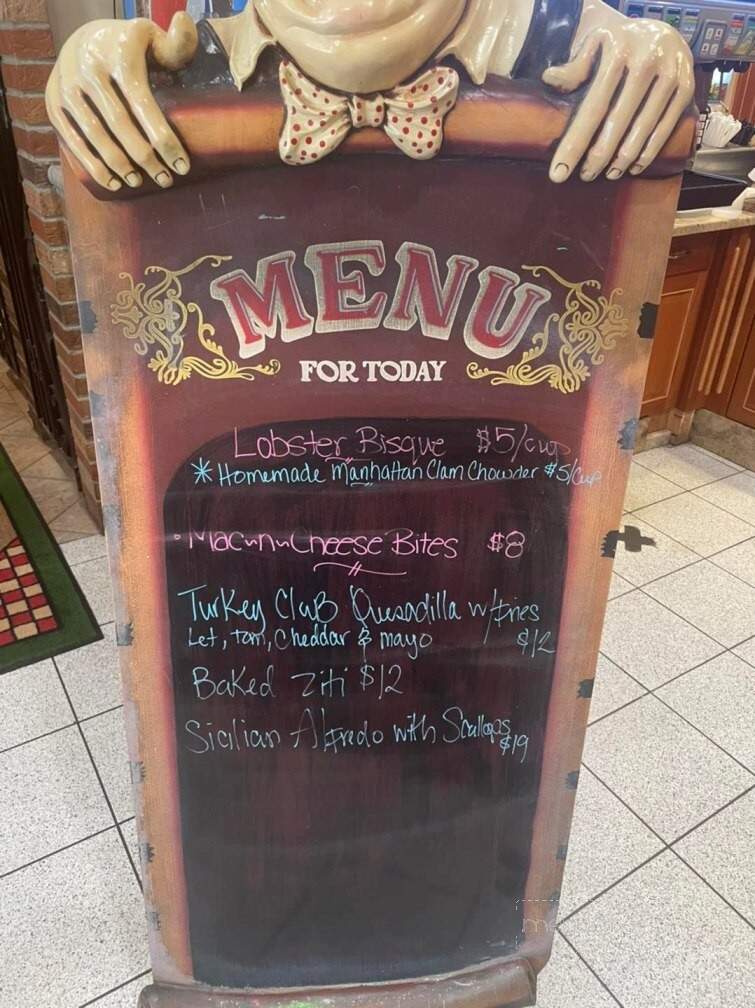 MENU
FOR TODAY
Lobster Bisque $5/cup
* Homemade Manhattan Clam Chowder $5/cup
• Mac-n-Cheese Bites $8
Turkey Club Quesadilla w/Fries
Let, tom, Cheddar & mayo $12
Baked Ziti $12
Sicilian Alfredo with Scallops
$19